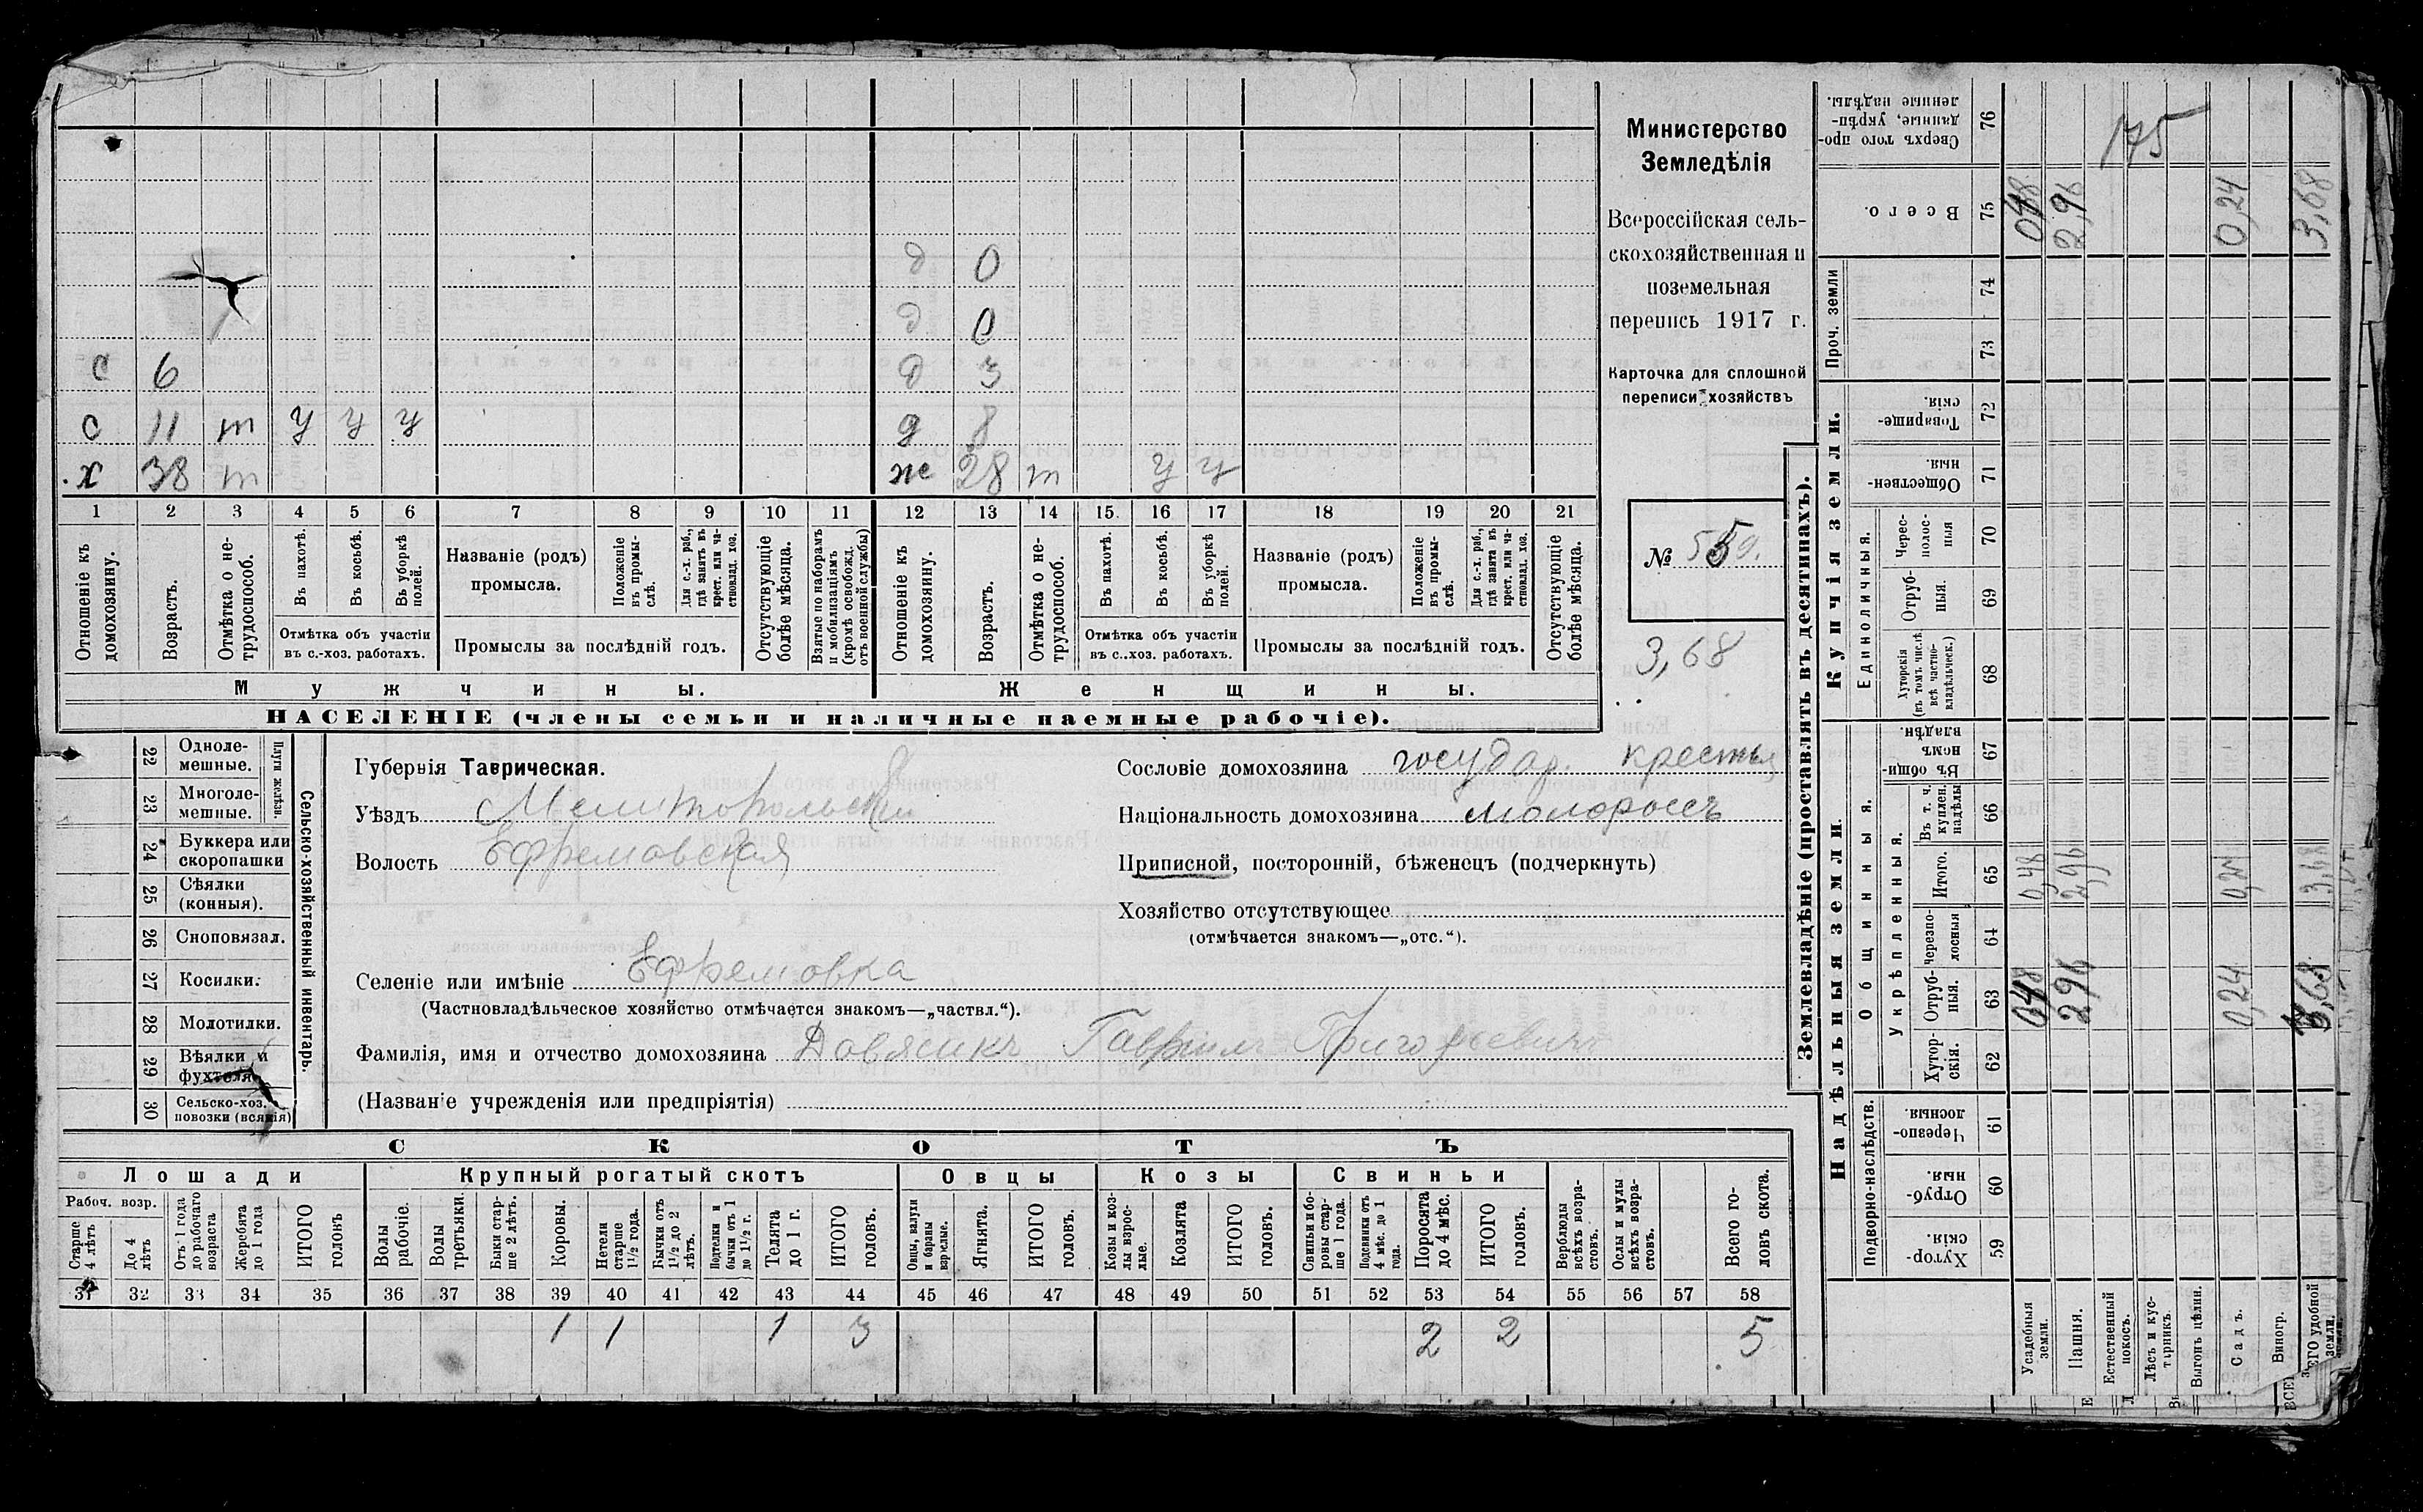 д 0
д 0
с 6 д 3
с 11 т у у у д 8
х 38 т ж 28 т у у
1 2 3 4 5 6 7 8 9 10 11 12 13 14 15. 16 17 18 19 20 21
Отношеніе къ домохозяину.
Возрастъ.
Отмѣтка о не-трудоспособ.
Въ пахотѣ.
Въ косьбѣ.
Въ уборкѣ полей.
Отмѣтка объ участіи
въ с.-хоз. работахъ.
Названіе (родъ)
промысла.
Положеніе въ промы-слѣ.
Для с.-х. раб., гдѣ занятъ въ крест. или ча-стновлад. хоз.
Промыслы за послѣдній годъ.
Отсутствующіе болѣе мѣсяца.
Взятые по наборамъ и мобилизаціямъ (кромѣ освобожд. отъ военной службы)
Отношеніе къ домохозяину.
Возрастъ.
Отмѣтка о не-трудоспособ.
Въ пахотѣ.
Въ косьбѣ.
Въ уборкѣ полей.
Отмѣтка объ участіи
въ с..хоз. работахъ.
Названіе (родъ)
промысла.
Положеніе въ промы-слѣ.
Для с.-х. раб., гдѣ занята въ крест. или ча-стновлад. хоз.
Промыслы за послѣдній годъ.
Отсутствующіе болѣе мѣсяца.
Мужчины.
Женщины.
НАСЕЛЕНІЕ (члены семьи и наличные наемные рабочіе).
Министерство
Земледѣлія
Всероссійская сель-
скохозяйственная и
поземельная
перепись 1917 г.
Карточка для сплошной
переписи хозяйствъ
№
3,68
22 Одноле-мешные.
23 Многоле-мешные.
Плуги желѣзн.
24 Буккера или скоропашки
25 Сѣялки (конныя).
26 Сноповязал.
27 Косилки.
28 Молотилки.
29 Вѣялки и фухтеля.
30 Сельско-хоз. повозки (всякія)
Сельско-хозяйственный инвентарь.
Губернія Таврическая.
Уѣздъ Мелитопольскій
Волость Ефремовская
Сословіе домохозяина государ. крестья
Національность домохозяина малороссъ
Приписной, посторонній, бѣженецъ (подчеркнуть)
Хозяйство отсутствующее
(отмѣчается знакомъ—„отс.“).
Селеніе или имѣніе Ефремовка
(Частновладѣльческое хозяйство отмѣчается знакомъ—„частвл.“).
Фамилія, имя и отчество домохозяина Довясикъ Гавріилъ Григорьевичъ
(Названіе учрежденія или предпріятія)
СКОТЪ
Лошади Крупный рогатый скотъ Овцы Козы Свиньи
Рабоч. возр.
Старше 4 лѣтъ
До 4 лѣтъ
Отъ 1 года до рабочаго возраста
Жеребята до 1 года
ИТОГО головъ
Волы рабочіе.
Волы третьяки.
Быки стар-ше 2 лѣтъ.
Коровы.
Нетели старше 1½ года.
Бычки отъ 1½ до 2 лѣтъ.
Подтелки и бычки отъ 1 до 1½ г.
Телята до 1 г.
ИТОГО головъ.
Овцы, валухи и бараны взрослые.
Ягнята.
ИТОГО головъ.
Козы и коз-лы взрос-лые.
Козлята
ИТОГО головъ.
Свиньи и бо-ровы стар-ше 1 года.
Подсвинки отъ 4 мѣс. до 1 года.
Поросята до 4 мѣс.
ИТОГО головъ.
Верблюды всѣхъ возра-стовъ.
Ослы и мулы всѣхъ возра-стовъ.
Всего го-ловъ скота.
31 32 33 34 35 36 37 38 39 40 41 42 43 44 45 46 47 48 49 50 51 52 53 54 55 56 57 58
1 1 1 3 2 2 5
Землевладѣніе (проставлять въ десятинахъ).
Надѣльныя земли
Купчія земли.
Проч. земли
Общинныя.
Укрѣпленныя.
Единоличныя.
Подворно-наслѣдств.
Сверхъ того про-данные, укрѣп-ленные надѣлы. 76 175
Всего. 75 0,48 2,96 0,24 3,68
74
73
Товарище-скія. 72
Обществен-ныя. 71
Черес-полос-ныя 70
Отруб-ныя. 69
Хуторскія (въ томъ числѣ всѣ частно-владѣльческ.) 68
Въ общин-номъ владѣн. 67
Въ т. ч. куплен. надѣлы 66
Итого. 65 0,48 2,96 0,24 3,68
Черезпо-лосныя 64
Отруб-ныя. 63 0,48 2,96 0,24 3,68
Хутор-скія. 62
Черезпо-лосныя 61
Отруб-ныя. 60
Хутор-скія. 59
Усадебныя земли.
Пашня.
Естественный покосъ.
Лѣсъ и кус-тарникъ.
Выгонъ цѣлин.
Садъ.
Виногр.